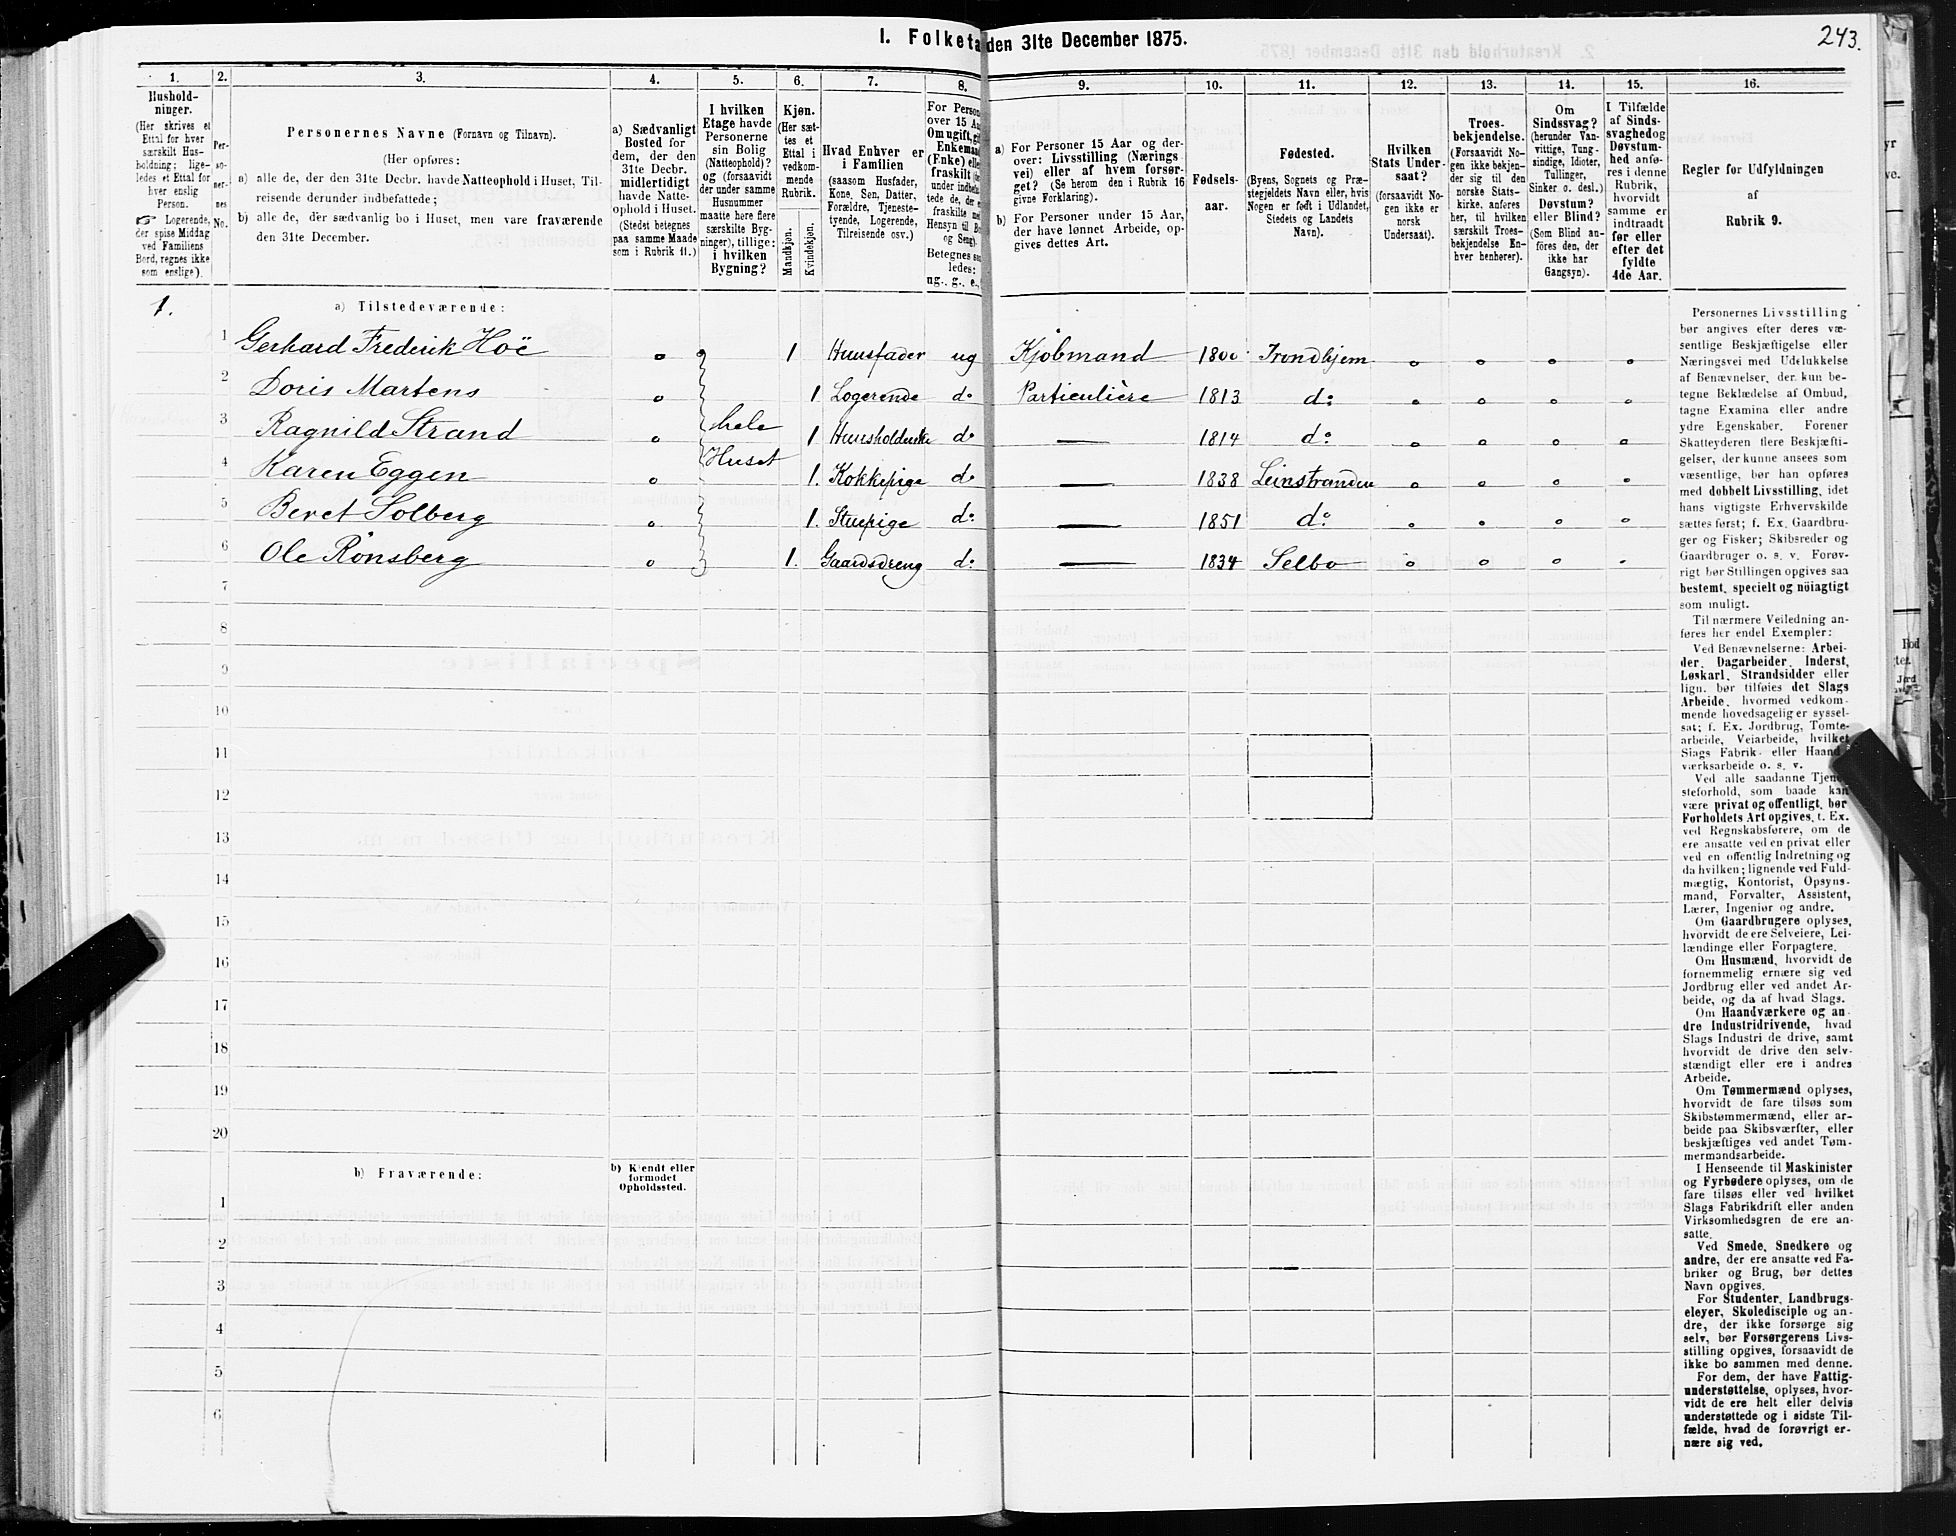 I. Folketa den 31te December 1875.
243.
1. 2. 3. 4. 5. 6. 7. 8. 9. 10. 11. 12. 13. 14. 15. 16.
Hushold-
ninger.
(Her skrives et
Ettal for hver
særskilt Hus-
holdning; lige-
ledes et Ettal for
hver enslig
Person.
☞ Logerende,
der spise Middag
ved Familiens
Bord, regnes ikke
som enslige).
Per-
so-
ner-
nes
No.
Personernes Navne (Fornavn og Tilnavn).
(Her opføres:
a) alle de, der den 31te Decbr. havde Natteophold i Huset, Til-
reisende derunder indbefattede;
b) alle de, der sædvanlig bo i Huset, men vare fraværende
den 31te December.
a) Sædvanligt
Bosted for
dem, der den
31te Decbr.
midlertidigt
havde Natte-
ophold i Huset.
(Stedet betegnes
paa samme Maade
som i Rubrik 11.)
I hvilken
Etage havde
Personerne
sin Bolig
(Natteophold)?
og (forsaavidt
der under samme
Husnummer
maatte høre flere
særskilte Byg-
ninger), tillige:
i hvilken
Bygning?
Kjøn.
(Her sæt-
tes et
Ettal i
vedkom-
mende
Rubrik.
Mandkjøn.
Kvindekjøn.
Hvad Enhver er
i Familien
(saasom Husfader,
Kone, Søn, Datter,
Forældre, Tjeneste-
tyende, Logerende,
Tilreisende osv.)
For Person
over 15 Aa
Om ugift, gi
Enkemand
(Enke) elle
fraskilt
under indbe
tede de, der e
fraskilte me
Hensyn til Bo
og Seng).
Betegnes saa
ledes:
ug., g., e.,
a) For Personer 15 Aar og der-
over: Livsstilling (Nærings-
vei) eller af hvem forsør-
get? (Se herom den i Rubrik 16
givne Forklaring).
b) For Personer under 15 Aar,
der have lønnet Arbeide, op-
gives dettes Art.
Fødsels-
aar.
Fødested.
(Byens, Sognets og Præ-
stegjeldets Navn eller, hvis
Nogen er født i Udlandet,
Stedets og Landets
Navn).
Hvilken
Stats Under-
saat?
(forsaavidt No-
gen ikke er
norsk
Undersaat).
Troes-
bekjendelse.
(Forsaavidt No-
gen ikke bekjen-
der sig til den
norske Stats-
kirke, anføres
her, til hvilken
særskilt Troes-
bekjendelse En-
hver henhører).
Om
Sindssvag?
(herunder Van-
vittige, Tung-
sindige, Idioter,
Tullinger,
Sinker o. desl.)
Døvstum?
eller Blind?
(Som Blind an-
føres den, der
ikke har
Gangsyn).
I Tilfælde
af Sinds-
svaghed og
Døvstum-
hed anfø-
res i denne
Rubrik,
hvorvidt
samme er
indtraadt
før eller
efter det
fyldte
4de Aar.
Regler for Udfyldningen
af
Rubrik 9.
1.
a) Tilstedeværende:
1 Gerhard Frederik Hoë o 1 Huusfader ug Kjøbmand 1800 Trondhjem o o o o
2 Doris Martens o 1 Logerende do Particulière 1813 do o o o o
3 Ragnild Strand o hele 1 Huusholderske do — 1814 do o o o o
4 Karen Eggen o Huset 1. Kokkepige do — 1838 Leinstranden o o o o
5 Beret Solberg o 1. Stuepige do — 1851 do o o o o
6 Ole Rønsberg o 1. Gaardsdreng do — 1834 Selbo o o o o
7
8
9
10
11
12
13
14
15
16
17
18
19
20
b) Fraværende:
b) Kjendt eller
formodet
Opholdssted.
1
2
3
4
5
6
Personernes Livsstilling
bør angives efter deres væ-
sentlige Beskjæftigelse eller
Næringsvei med Udelukkelse
af Benævnelser, der kun be-
tegne Beklædelse af Ombud,
tagne Examina eller andre
ydre Egenskaber. Forener
Skatteyderen flere Beskjæfti-
gelser, der kunne ansees som
væsentlige, bør han opføres
med dobbelt Livsstilling, idet
hans vigtigste Erhvervskilde
sættes først; f. Ex. Gaardbru-
ger og Fisker; Skibsreder og
Gaardbruger o. s. v. Forøv-
rigt bør Stillingen opgives saa
bestemt, specielt og nöiagtigt
som muligt.
Til nærmere Veiledning an-
føres her endel Exempler:
Ved Benævnelserne: Arbei-
der, Dagarbeider, Inderst,
Løskarl, Strandsidder eller
lign. bør tilføies det Slags
Arbeide, hvormed vedkom-
mende hovedsagelig er syssel-
sat; f. Ex. Jordbrug, Tomte-
arbeide, Veiarbeide, hvilket
Slags Fabrik- eller Haand-
værksarbeide o. s. v.
Ved alle saadanne Tjene-
steforhold, som baade kan
være privat og offentligt, bør
Forholdets Art opgives, t. Ex.
ved Regnskabsførere, om de
ere ansatte ved en privat eller
ved en offentlig Indretning og
da hvilken; lignende ved Fuld-
mægtig, Kontorist, Opsyns-
mand, Forvalter, Assistent,
Lærer, Ingeniør og andre.
Om Gaardbrugere oplyses,
hvorvidt de ere Selveiere, Lei-
lændinge eller Forpagtere.
Om Husmænd, hvorvidt de
fornemmelig ernære sig ved
Jordbrug eller ved andet Ar-
beide, og da af hvad Slags.
Om Haandværkere og an-
dre Industridrivende, hvad
Slags Industri de drive, samt
hvorvidt de drive den selv-
stændigt eller ere i andres
Arbeide.
Om Tømmermænd oplyses,
hvorvidt de fare tilsøs som
Skibstømmermænd, eller ar-
beide paa Skibsværfter, eller
beskjæftiges ved andet Tøm-
mermandsarbeide.
I Henseende til Maskinister
og Fyrbødere oplyses, om de
fare tilsøs eller ved hvilket
Slags Fabrikdrift eller anden
Virksomhedsgren de ere an-
satte.
Ved Smede, Snedkere og
andre, der ere ansatte ved Fa-
briker og Brug, bør dettes
Navn opgives.
For Studenter, Landbrugs-
eleyer, Skoledisciple og an-
dre, der ikke forsørge sig
selv, bør Forsørgerens Livs-
stilling opgives, forsaavidt de
ikke bo sammen med denne.
For dem, der have Fattig-
understøttelse, oplyses, hvor-
vidt de ere helt eller delvis
understøttede og i sidste Til-
fælde, hvad de forøvrigt er-
nære sig ved.